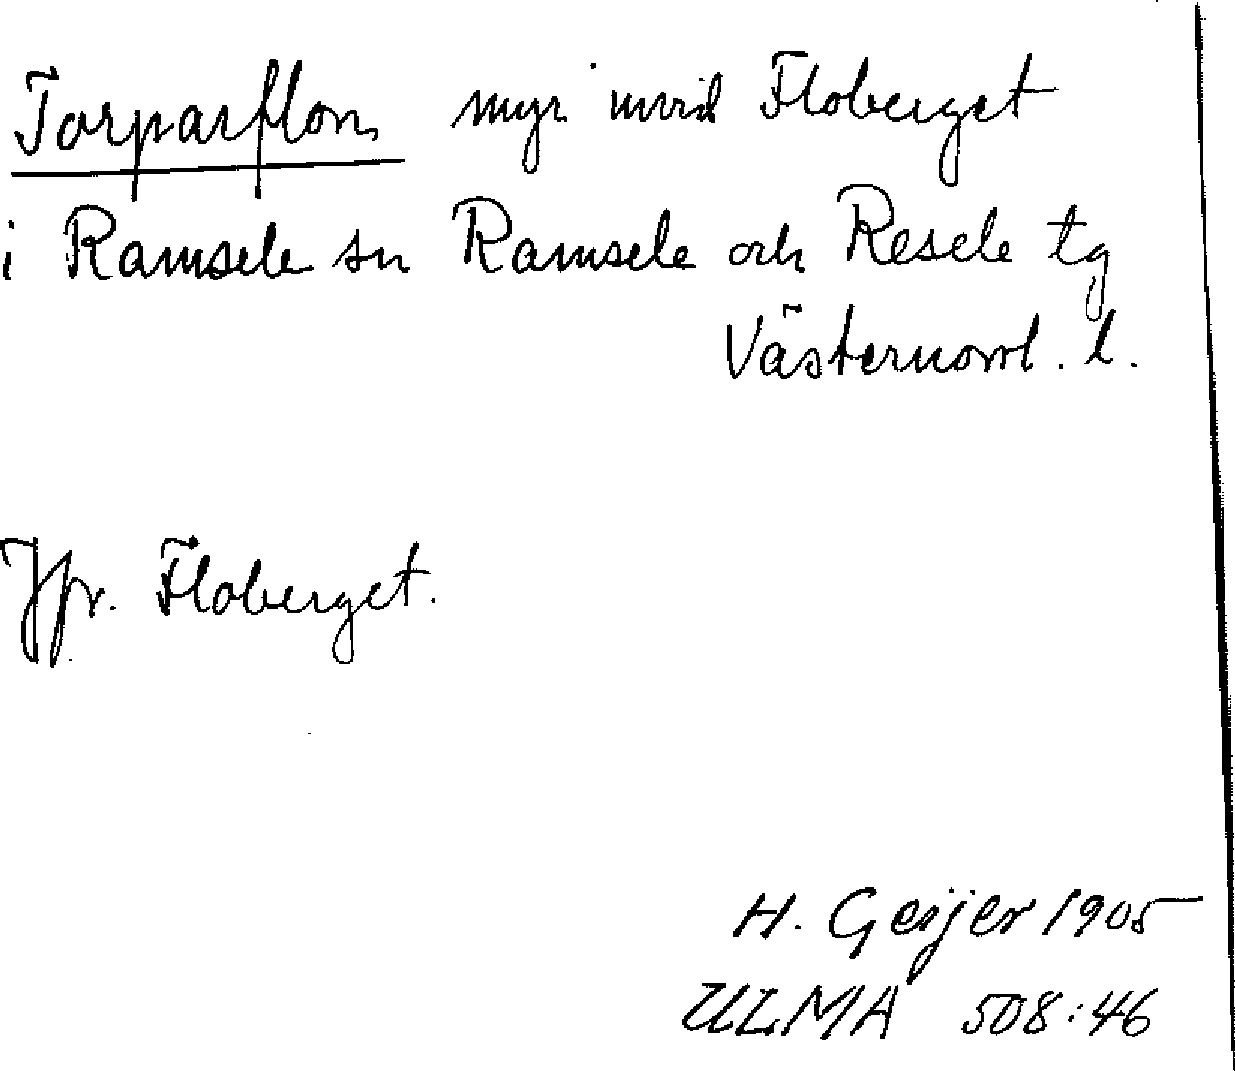 Torparflon myr invid Floberget
i Ramsele sn Ramsele och Resele tg
Västernorrl. l.
Jfr. Floberget.
H. Geijer 1905
ULMA 508:46